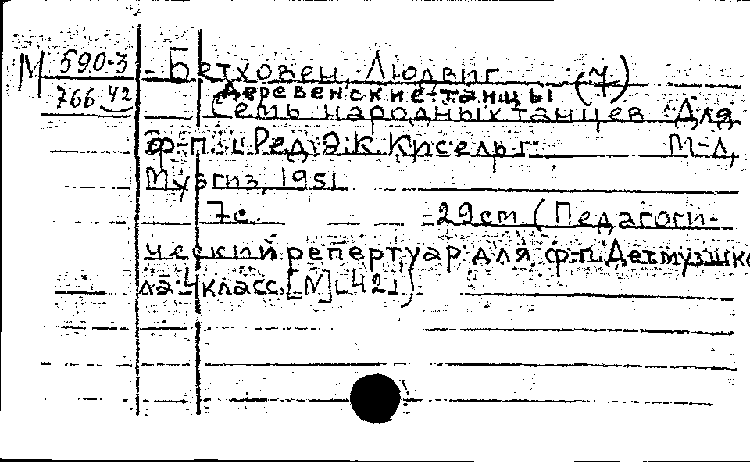 М 590-3
766 42
Бетховен, Людвиг (7)
Деревенские танцы
Семь народных танцев. Для
ф-п. Ред. Э.К. Кисель г. М-Л,
Музгиз, 1951.
7с. 29см (Педагоги-
ческий репертуар для ф.п. Детмузшко
ла 4 класс. [N 42])